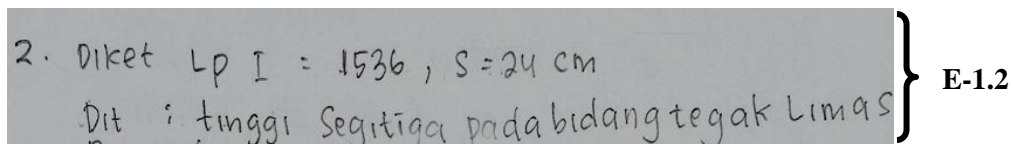 2. Diket Lp I : 1536, S = 24 cm
Dit : tinggi Segitiga pada bidang tegak Limas
E-1.2